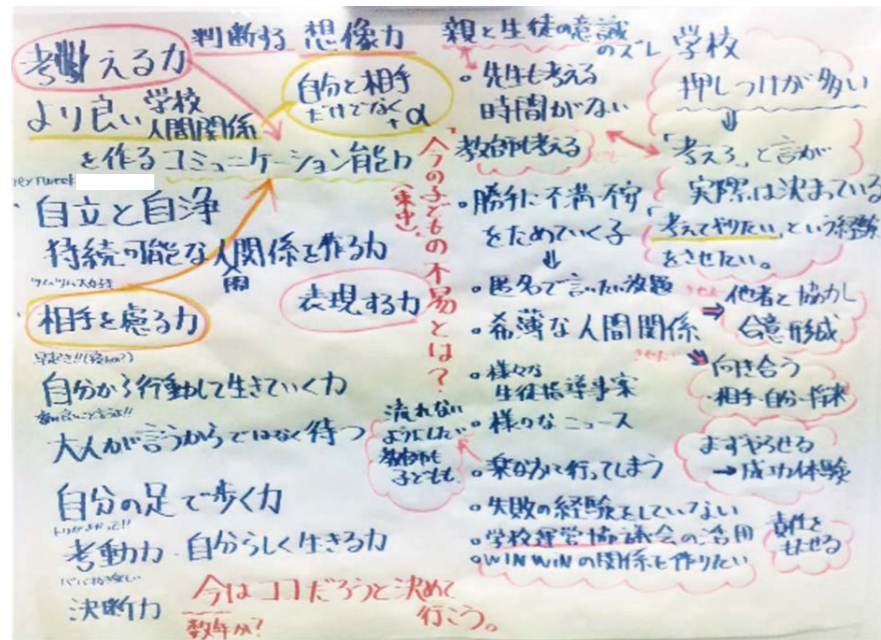 考える力
判断する 想像力
より良い 学校
人間関係
自分と相手
だけでなく
+α
を作る コミュニケーション能力
自立と自浄
持続可能な人間関係を作る力
相手を慮る力
表現する力
自分から行動して生きていく力
大人が言うからではなく待つ
自分の足で歩く力
考動力 自分らしく生きる力
決断力
今はココだろうと決めて
行こう。
数年か?
「今の子どもの不易とは?
親と生徒の意識
のズレ
・先生も考える
時間がない
教師も考える
・勝手に不満・不安
をためていく子
・匿名で言いたい放題
・希薄な人間関係
・様々な
生徒指導事案
・様々なニュース
・楽な方に行ってしまう
流れない
ようにしたい
教師も
子どもも
・失敗の経験をしていない
・学校運営協議会の活用
・WIN WINの関係を作りたい
学校
押しつけが多い
「考えろ」と言うが
実際は決まっている
「考えてやりたい」という経験
をさせたい。
他者と協力し
合意形成
向き合う
相手・自分・将来
まずやらせる
→成功体験
責任を
もたせる